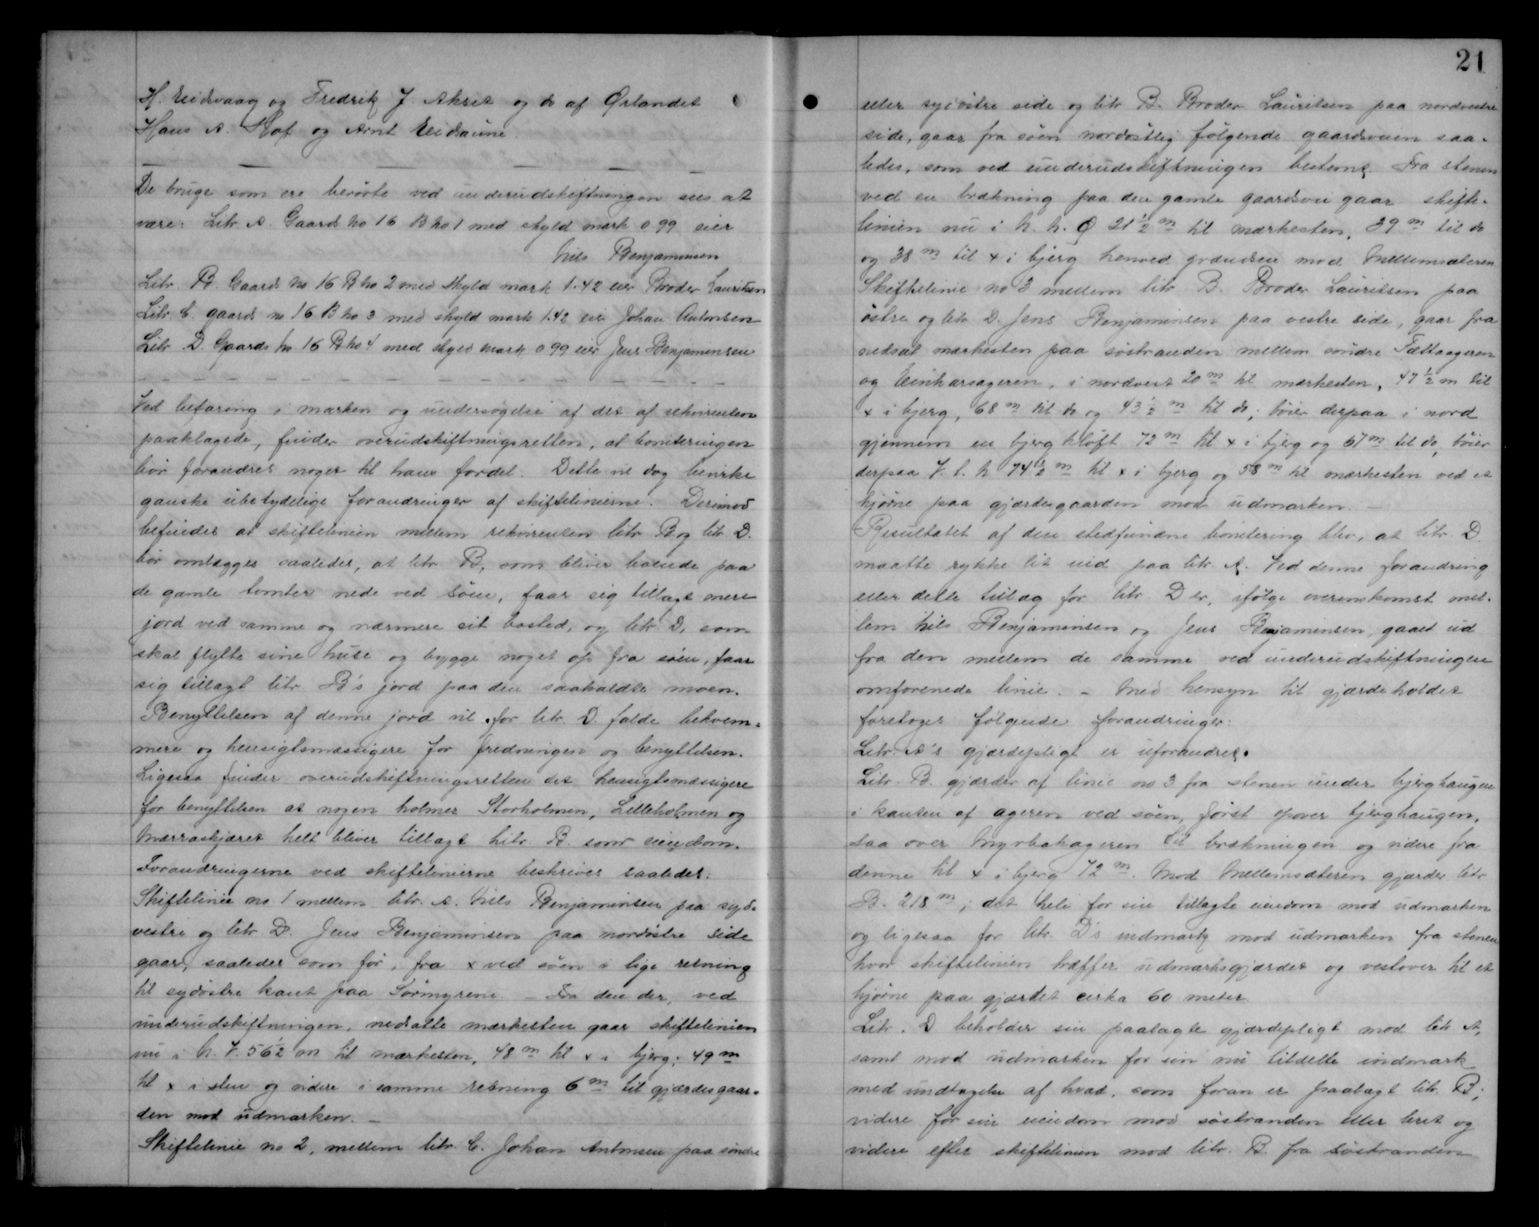 H. Eidsvaag og Fredrik J. Akset og do af Ørlandet
Hans A. Hof og Arnt Eidsaune
De bruge som ere berørte ved underudskiftningen sees at
være: Litr. A. Gaard No 16 B No 1 med skyld mark 0.99 eier
Nils Benjaminsen
Litr. B. Gaard No 16 B No 2 med skyld mark 1.42 eier Broder Lauritsen
Litr. C. gaard no 16 B No 3 med skyld mark 1.42 eier Johan Antonsen
Litr. D. Gaards No 16 B No 4 med skyld mark 0.99 eier Jens Benjaminsen
Ved befaring i marken og undersøgelse af det af rekvirenten
paaklagede, finder overudskiftningsretten, at boniteringen
bør forandres noget til hans fordel. Dette vil dog bevirke
ganske ubetydelige forandringer af skiftelinierne. Derimod
befindes at skiftelinien mellem rekvirenten litr. B og litr. D.
bør omlægges saaledes, at litr. B, som bliver boende paa
de gamle tomter nede ved søen, faar sig tillagt mere
jord ved samme og nærmere sit bosted, og litr. D, som
skal flytte sine huse og bygge noget op fra søen, faar
sig tillagt litr. B's jord paa den saakaldte moen.
Benyttelsen af denne jord vil for litr. D. falde bekvem-
mere og hensigtsmæssigere for fredningen og benyttelsen.
Ligesaa finder overudskiftningsretten det hensigtsmæssigere
for benyttelsen at nogen holmer Storholmen, Lilleholmen og
Mærraskjæret helt bliver tillagt litr. B som eiendom.
Forandringerne ved skiftelinierne beskrives saaledes:
Skiftelinie no 1 mellem litr. A. Nils Benjaminsen paa syd-
vestre og litr. D. Jens Benjaminsen paa nordøstre side
gaar, saaledes som før, fra x ved søen i lige retning
til sydøstre kant paa Sørmyrene. – Fra den der, ved
underudskiftningen, nedsatte mærkesten gaar skiftelinien
nu i N. V. 56½ m til mærkesten, 48 m til x i bjerg, 49 m
til x i sten og videre i samme retning 6 m til gjærdesgaar-
den mod udmarken. –
Skiftelinie no 2, mellem litr. C. Johan Antonsen paa søndre
21
eller sydøstre side og litr B. Broder Lauritsen paa nordvestre
side, gaar fra søen nordøstlig følgende gaardsveien saa-
ledes, som ved underudskiftningen bestemt. Fra stenen
ved en brækning paa den gamle gaardsvei gaar skifte-
linien nu i N. N. Ø 21½ m til mærkesten, 29 m til do
og 38 m til x i bjerg henved grændsen mod Mellemsæteren
Skiftelinie no 3 mellem litr. B. Broder Lauritsen paa
østre og litr. D. Jens Benjaminsen paa vestre side, gaar fra
nedsat mærkesten paa søstranden mellem søndre Tættaageren
og Einharsageren, i nordvest 20 m til mærkesten, 47½ m til
x i bjerg, 68 m til do og 43½ m til do; bøier derpaa i nord
gjennem en bjergkløft 72 m til x i bjerg og 67 m til do, bøier
derpaa V. t. N 74½ m til x i bjerg og 58 m til mærkesten ved et
hjørne paa gjærdesgaarden mod udmarken. –
Resultatet af den stedfundne bonitering blev, at litr. D
maatte rykke lit ind paa litr. A. Ved denne forandring
eller dette tillæg for litr. D er, ifølge overenskomst mel-
lem Nils Benjaminsen og Jens Benjaminsen, gaaet ud
fra den mellem de samme ved underudskiftningen
omforenede linie. – Med hensyn til gjærdeholdet
foretoges følgende forandringer:
Litr. A's gjærdepligt er uforandret.
Litr. B. gjærder af linie no 3 fra stenen under bjerghaugen
i kanten af ageren ved søen, først over bjerghaugen,
saa over Myrbakageren til brækningen og videre fra
denne til x i bjerg 72 m. Mod Mellemsæteren gjærder litr
B. 218 m; det hele for sin tillagte eiendom mod udmarken
og ligesaa for litr. D's indmark mod udmarken fra stenen
hvor skiftelinien træffer udmarksgjærdet og vestover til et
hjørne paa gjærdet cirka 60 meter
Litr. D beholder sin paalagte gjærdepligt mod litr A,
samt mod udmarken for sin nu tildelte indmark
med undtagelse af hvad, som foran er paalagt litr. B;
videre for sin eiendom mod søstranden eller leret og
videre efter skiftelinien mod litr. B. fra søstranden